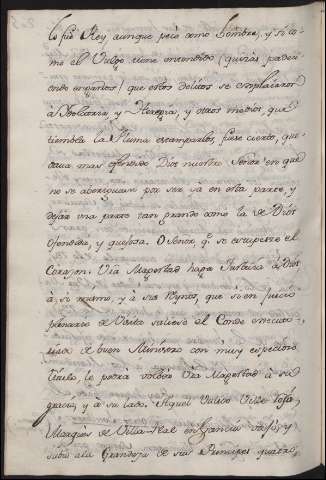 la fue Rey, aunque pecò como hombre, y si co-
mo el Vulgo tiene entendido (quizàs padeci-
endo engaños) que estos delitos se
à Idolatria, y Heregia, y otros medios, que
tiembla la Pluma estamparlos, fuese cierto, que-
daua mas ofendido Dios nuestro Señor en que
no se aberiguasen por ser ia en esta parte, y
dejar vna parte tan grande como la de Dios
ofendida, y quejosa. O Señor, q.e se estremesse el
Corazon. V.ra Magestad haga Justicia à Dios
à si mismo, y à sus Reynos, que si en juicio
plenario de Visita saliese el Conde executo-
riado de buen Ministro con muy
titulo le podra volber V.ra Magestad à su
gracia, y à su lado. Aquel Valido Villa
Marques de Villa Real en Francia
subio a la Grandeza de sus Principes quatro